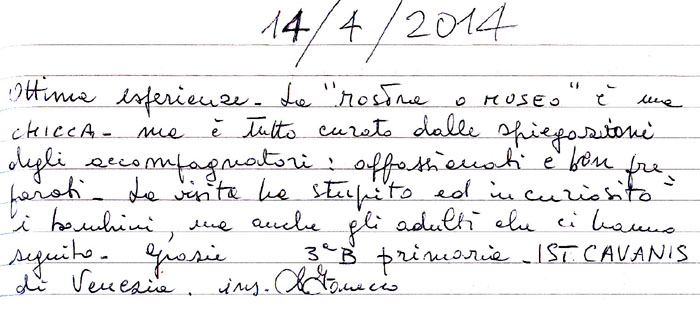 14/4/2014
Ottima esperienza - La "MOSTRA O MUSEO" è una
CHICCA - ma è tutto curato dalle spiegazioni
degli accompagnatori: appassionati e ben pre=
parati - La visita ha stupito ed incuriosito
i bambini, ma anche gli adulti che ci hanno
seguito - Grazie 3ªB primaria - IST. CAVANIS
di Venezia. ins.